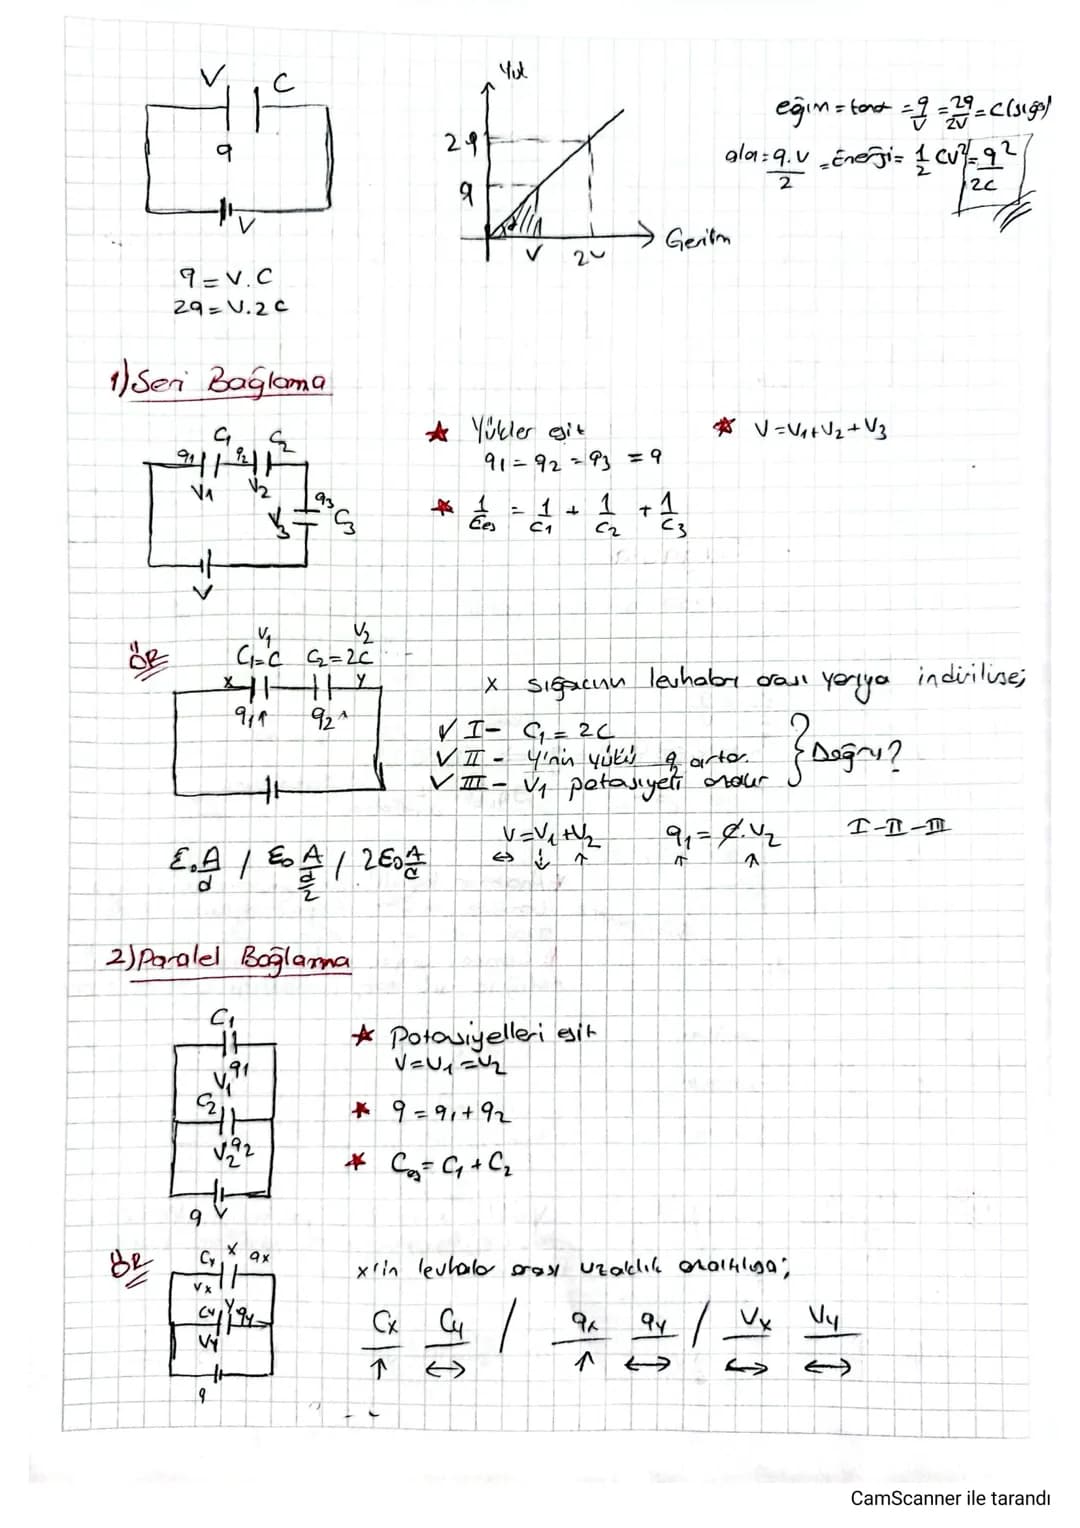 V C
q
V
q = V.C
2q = V.2C
Yük
2q
q
V 2V
Gerilim
eğim = tanα = q/V = 2q/2V = C (sığa)
alan = q.V/2 = Enerji = 1/2 CV² = q²/2C
1) Seri Bağlama
C1 C2
q1 q2
V1 V2
q3
V3 C3
V
★ Yükler eşit
q1 = q2 = q3 = q
★ V = V1 + V2 + V3
★ 1/Ceş = 1/C1 + 1/C2 + 1/C3
ÖR
V1 V2
C1=C C2=2C
X Y
q1↑ q2↑
X sığacının levhaları arası yarıya indirilirse;
✓ I- C1 = 2C
✓ II- Y'nin yükü q artar.
✓ III- V1 potasiyeli azalır
} Doğru?
V = V1 + V2
↔ ↓ ↑
q1 = C.V2
↑ ↑
I-II-III
ε0 A/d / ε0 A/(d/2) / 2ε0 A/d
2) Paralel Bağlama
C1
q1
V1
C2
q2
V2
q V
★ Potasiyelleri eşit
V = V1 = V2
★ q = q1 + q2
★ Ceş = C1 + C2
ÖR
X qx
Vx
Cy Y qy
Vy
q
X'in levhalar arası uzaklık azaltılırsa;
Cx Cy / qx qy / Vx Vy
↑ ↔ ↑ ↔ ↔ ↔
CamScanner ile tarandı